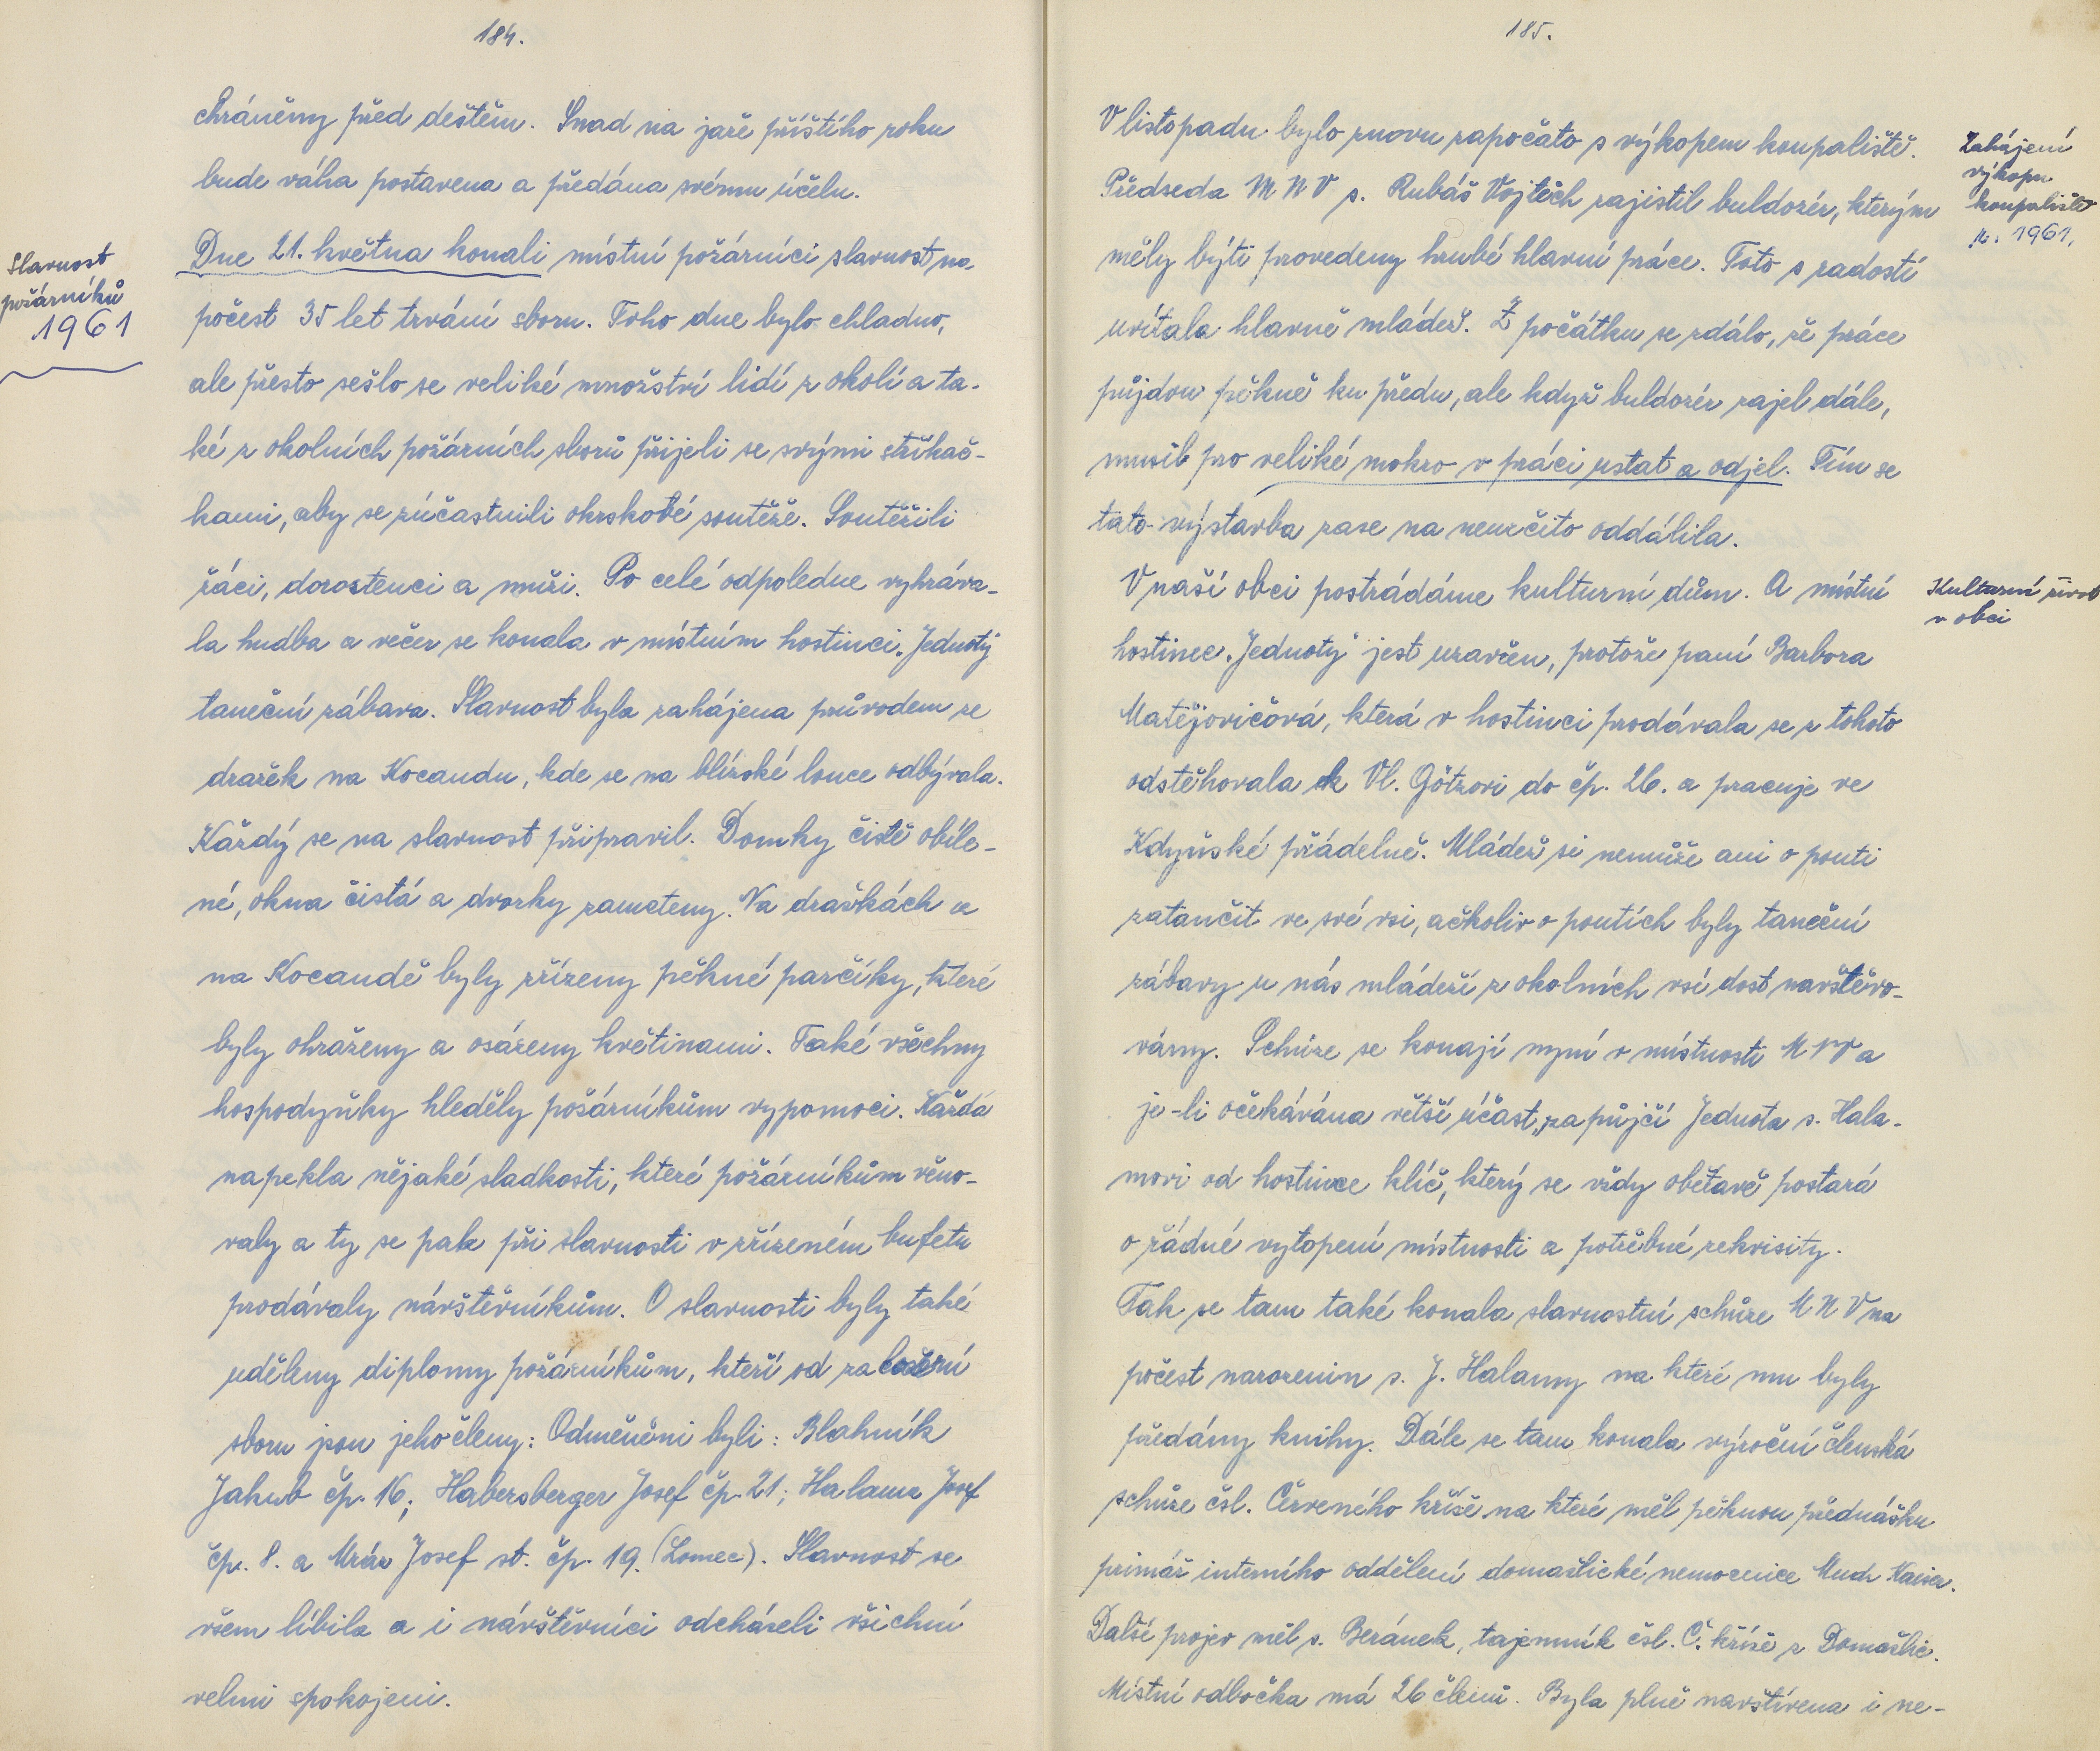 184.
chráněny před deštěm. Snad na jaře příštího roku
bude váha postavena a předána svému účelu.
Slavnost
požárníků
1961
Dne 21. května konali místní požárníci slavnost na
počest 35 let trvání sboru. Toho dne bylo chladno,
ale přesto sešlo se veliké množství lidí z okolí a ta-
ké z okolních požárních sborů přijeli se svými stříkač-
kami, aby se zúčastnili okrskové soutěže. Soutěžili
žáci, dorostenci a muži. Po celé odpoledne vyhráva-
la hudba a večer se konala v místním hostinci „Jednoty"
taneční zábava. Slavnost byla zahájena průvodem ze
dražek na Kocandu, kde se na blízské louce odbývala.
Každý se na slavnost připravil. Domky čistě obíle-
né, okna čistá a dvorky zameteny. Na dražkách a
na Kocandě byly zřízeny pěkné parčíky, které
byly ohraženy a osázeny květinami. Také všechny
hospodyňky hleděly požárníkům vypomoci. Každá
napekla nějaké sladkosti, které požárníkům věno-
valy a ty se pak při slavnosti v zřízeném bufetu
prodávaly návštěvníkům. O slavnosti byly také
uděleny diplomy požárníkům, kteří od založení
sboru jsou jeho členy: Odměněni byli: Blahník
Jakub čp. 16; Habersberger Josef čp. 21; Halama Josef
čp. 8. a Mráz Josef st. čp. 19. (Lomec). Slavnost se
všem líbila a i návštěvníci odcházeli všichni
velmi spokojeni.
185.
V listopadu bylo znovu započato s výkopem koupaliště.
Předseda M N V s. Rubáš Vojtěch zajistil buldozér, kterým
měly býti provedeny hrubé hlavní práce. Toto s radostí
uvítala hlavně mládež. Z počátku se zdálo, že práce
půjdou pěkně ku předu, ale když buldozér zajel dále,
musil pro veliké mokro v práci ustat a odjel. Tím se
tato výstavba zase na neurčito oddálila.
Zahájení
výkopu
koupaliště
r. 1961.
V naší obci postrádáme kulturní dům. A místní
hostinec „Jednoty" jest uzavřen, protože paní Barbora
Matějovičová, která v hostinci prodávala se z tohoto
odstěhovala k Vl. Götzovi do čp. 26. a pracuje ve
Kdyňské přádelně. Mládež si nemůže ani o pouti
zatančit ve své vsi, ačkoliv o poutích byly taneční
zábavy u nás mládeží z okolních vsí dost navštěvo-
vány. Schůze se konají nyní v místnosti MNV a
je-li očekávána větší účast, zapůjčí Jednota s. Hala-
movi od hostince klíč, který se vždy obětavě postará
o řádné vytopení místnosti a potřebné rekvisity.
Kulturní život
v obci
Tak se tam také konala slavnostní schůze M N V na
počest narozenin s. J. Halamy na které mu byly
předány knihy. Dále se tam konala výroční členská
schůze čsl. Červeného kříže na které měl pěknou přednášku
primář interního oddělení domažlické nemocnice Mudr Kaiser.
Další projev měl s. Beránek, tajemník čsl. Č. kříže z Domažlic.
Místní odbočka má 26 členů. Byla plně navštívena i ne-